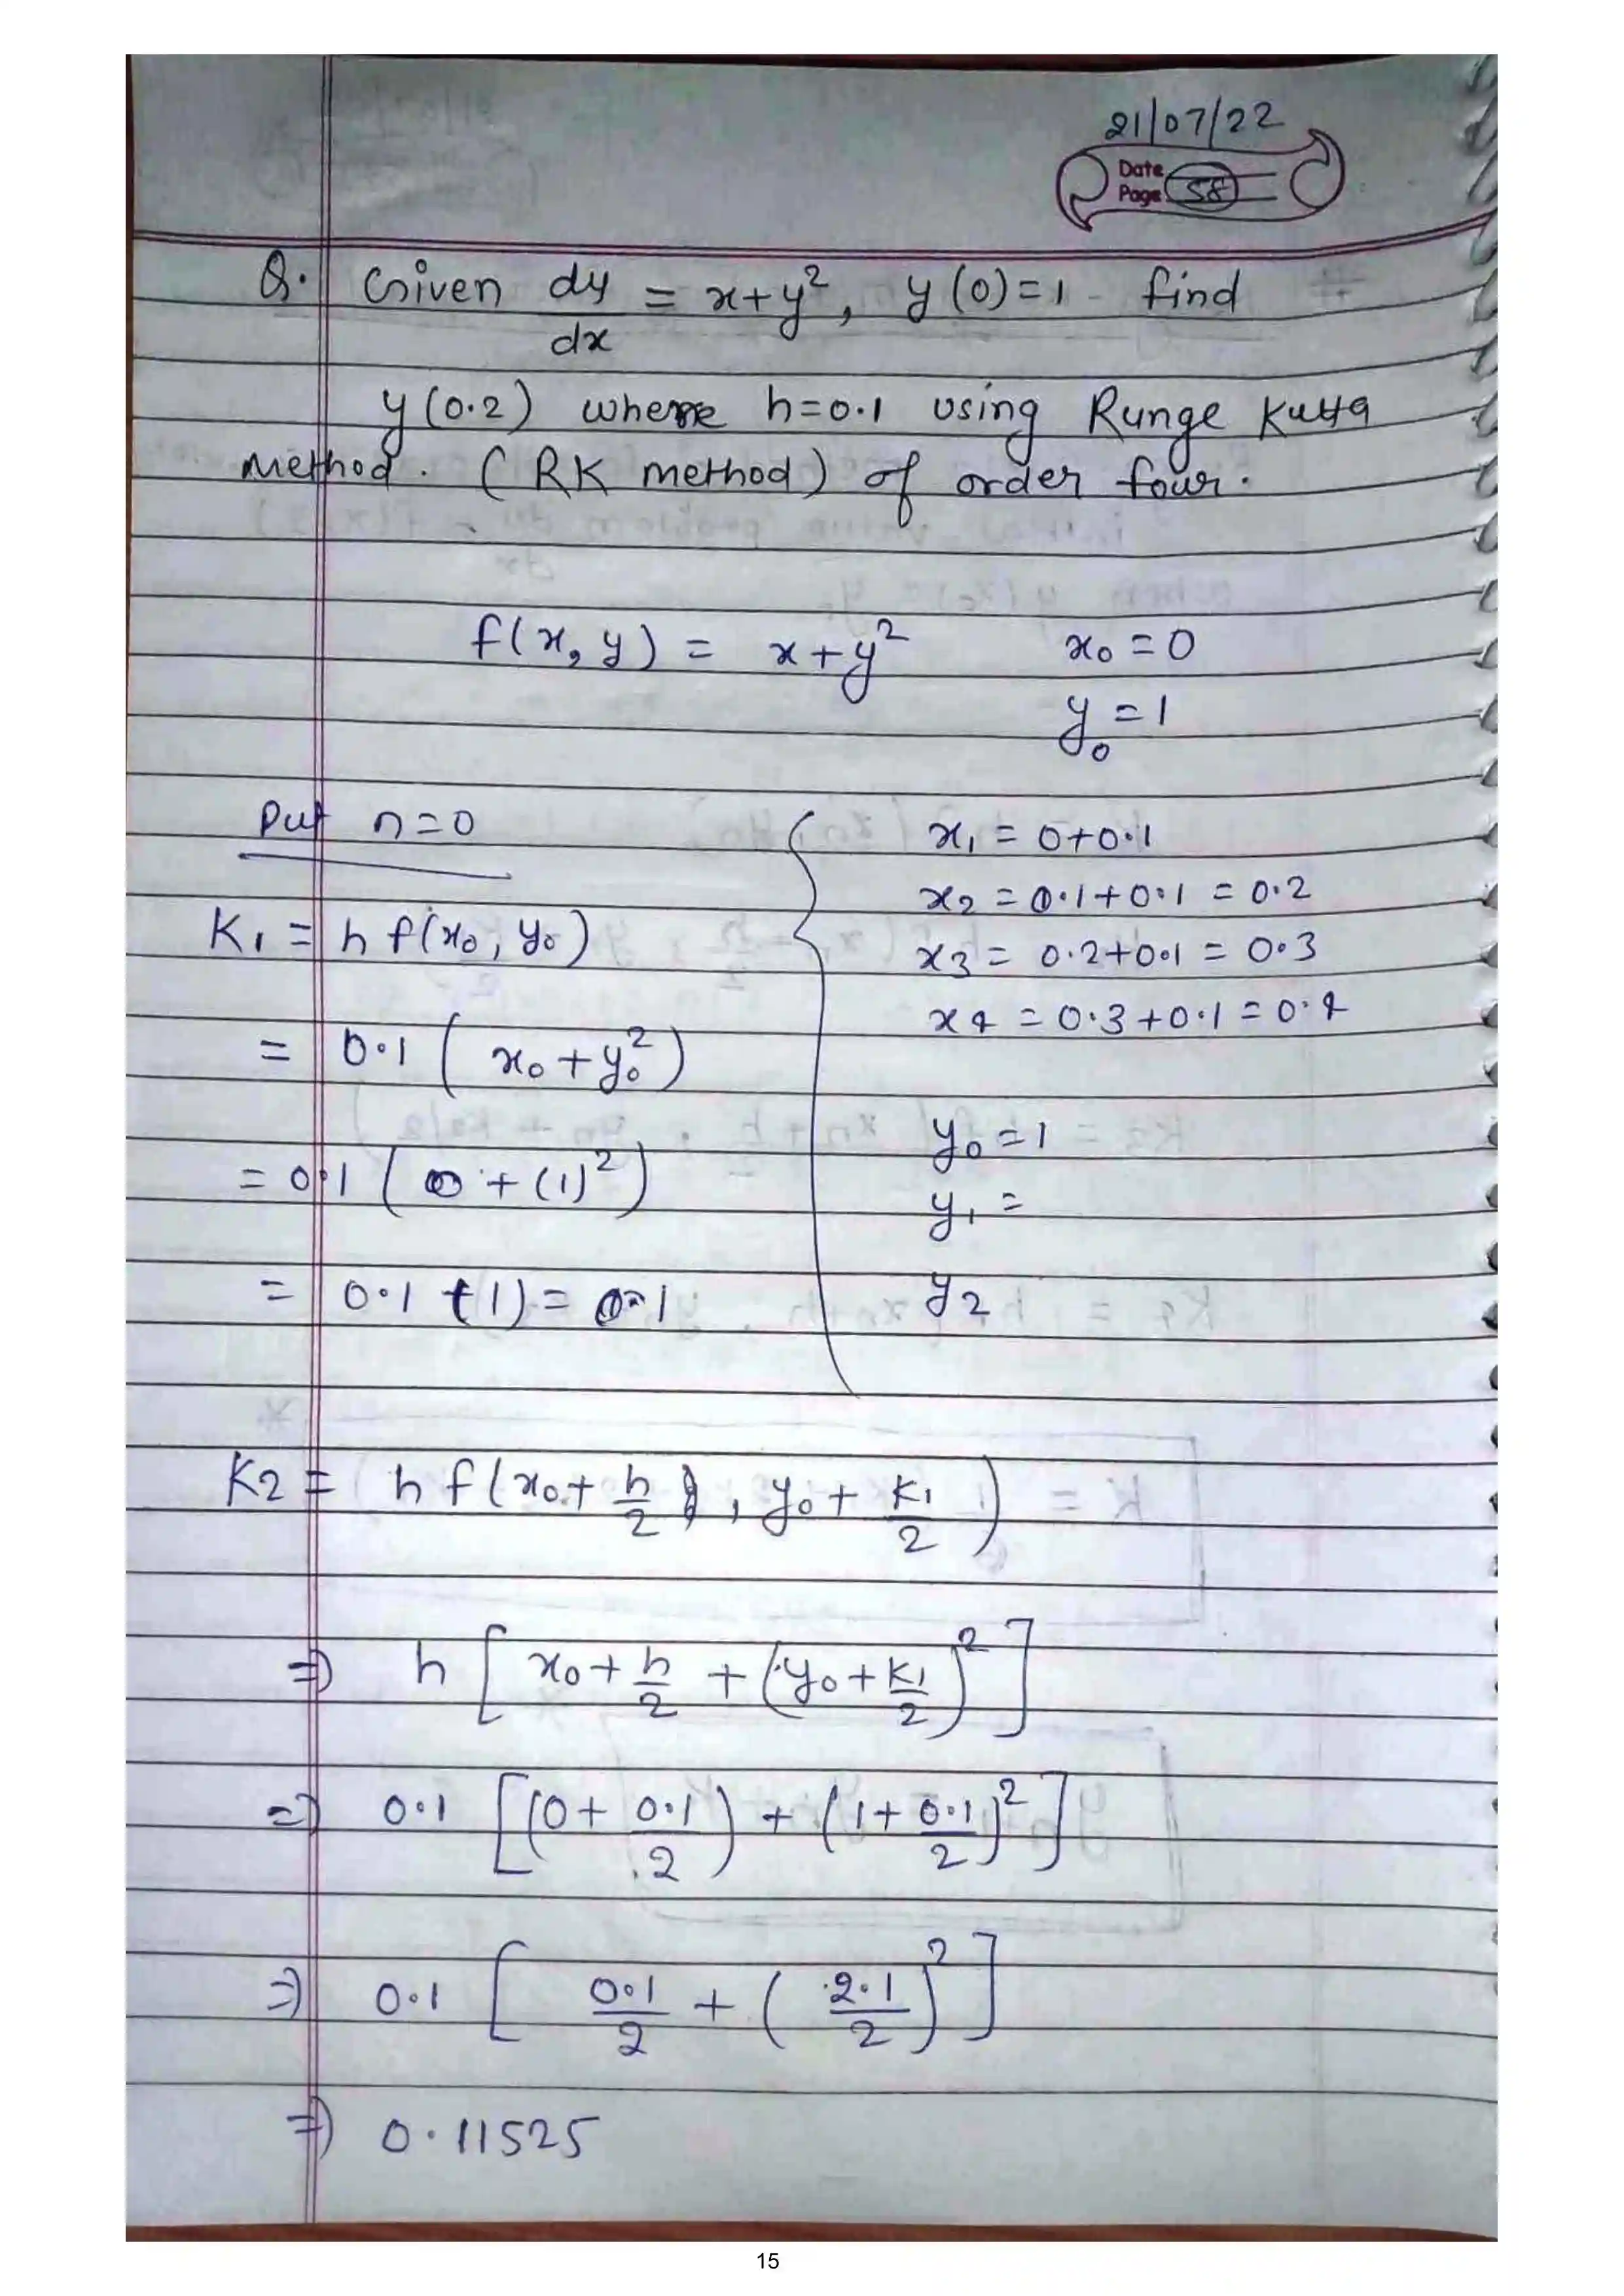 21/07/22
Date
Page 58
Q. Given dy/dx = x+y², y(0)=1 find
y(0.2) where h=0.1 using Runge Kutta
method. (RK method) of order four.
f(x, y) = x+y² x₀ = 0
y₀ = 1
Put n=0
K₁ = h f(x₀, y₀)
= 0.1 (x₀+y₀²)
= 0.1 (0 + (1)²)
= 0.1 (1) = 0.1
x₁ = 0+0.1
x₂ = 0.1+0.1 = 0.2
x₃ = 0.2+0.1 = 0.3
x₄ = 0.3+0.1 = 0.4
y₀ = 1
y₁ =
y₂
K₂ = h f(x₀+ h/2, y₀+ K₁/2)
⇒ h [x₀+ h/2 + (y₀+ K₁/2)²]
⇒ 0.1 [(0+ 0.1/2) + (1+ 0.1/2)²]
⇒ 0.1 [0.1/2 + (2.1/2)²]
⇒ 0.11525
15